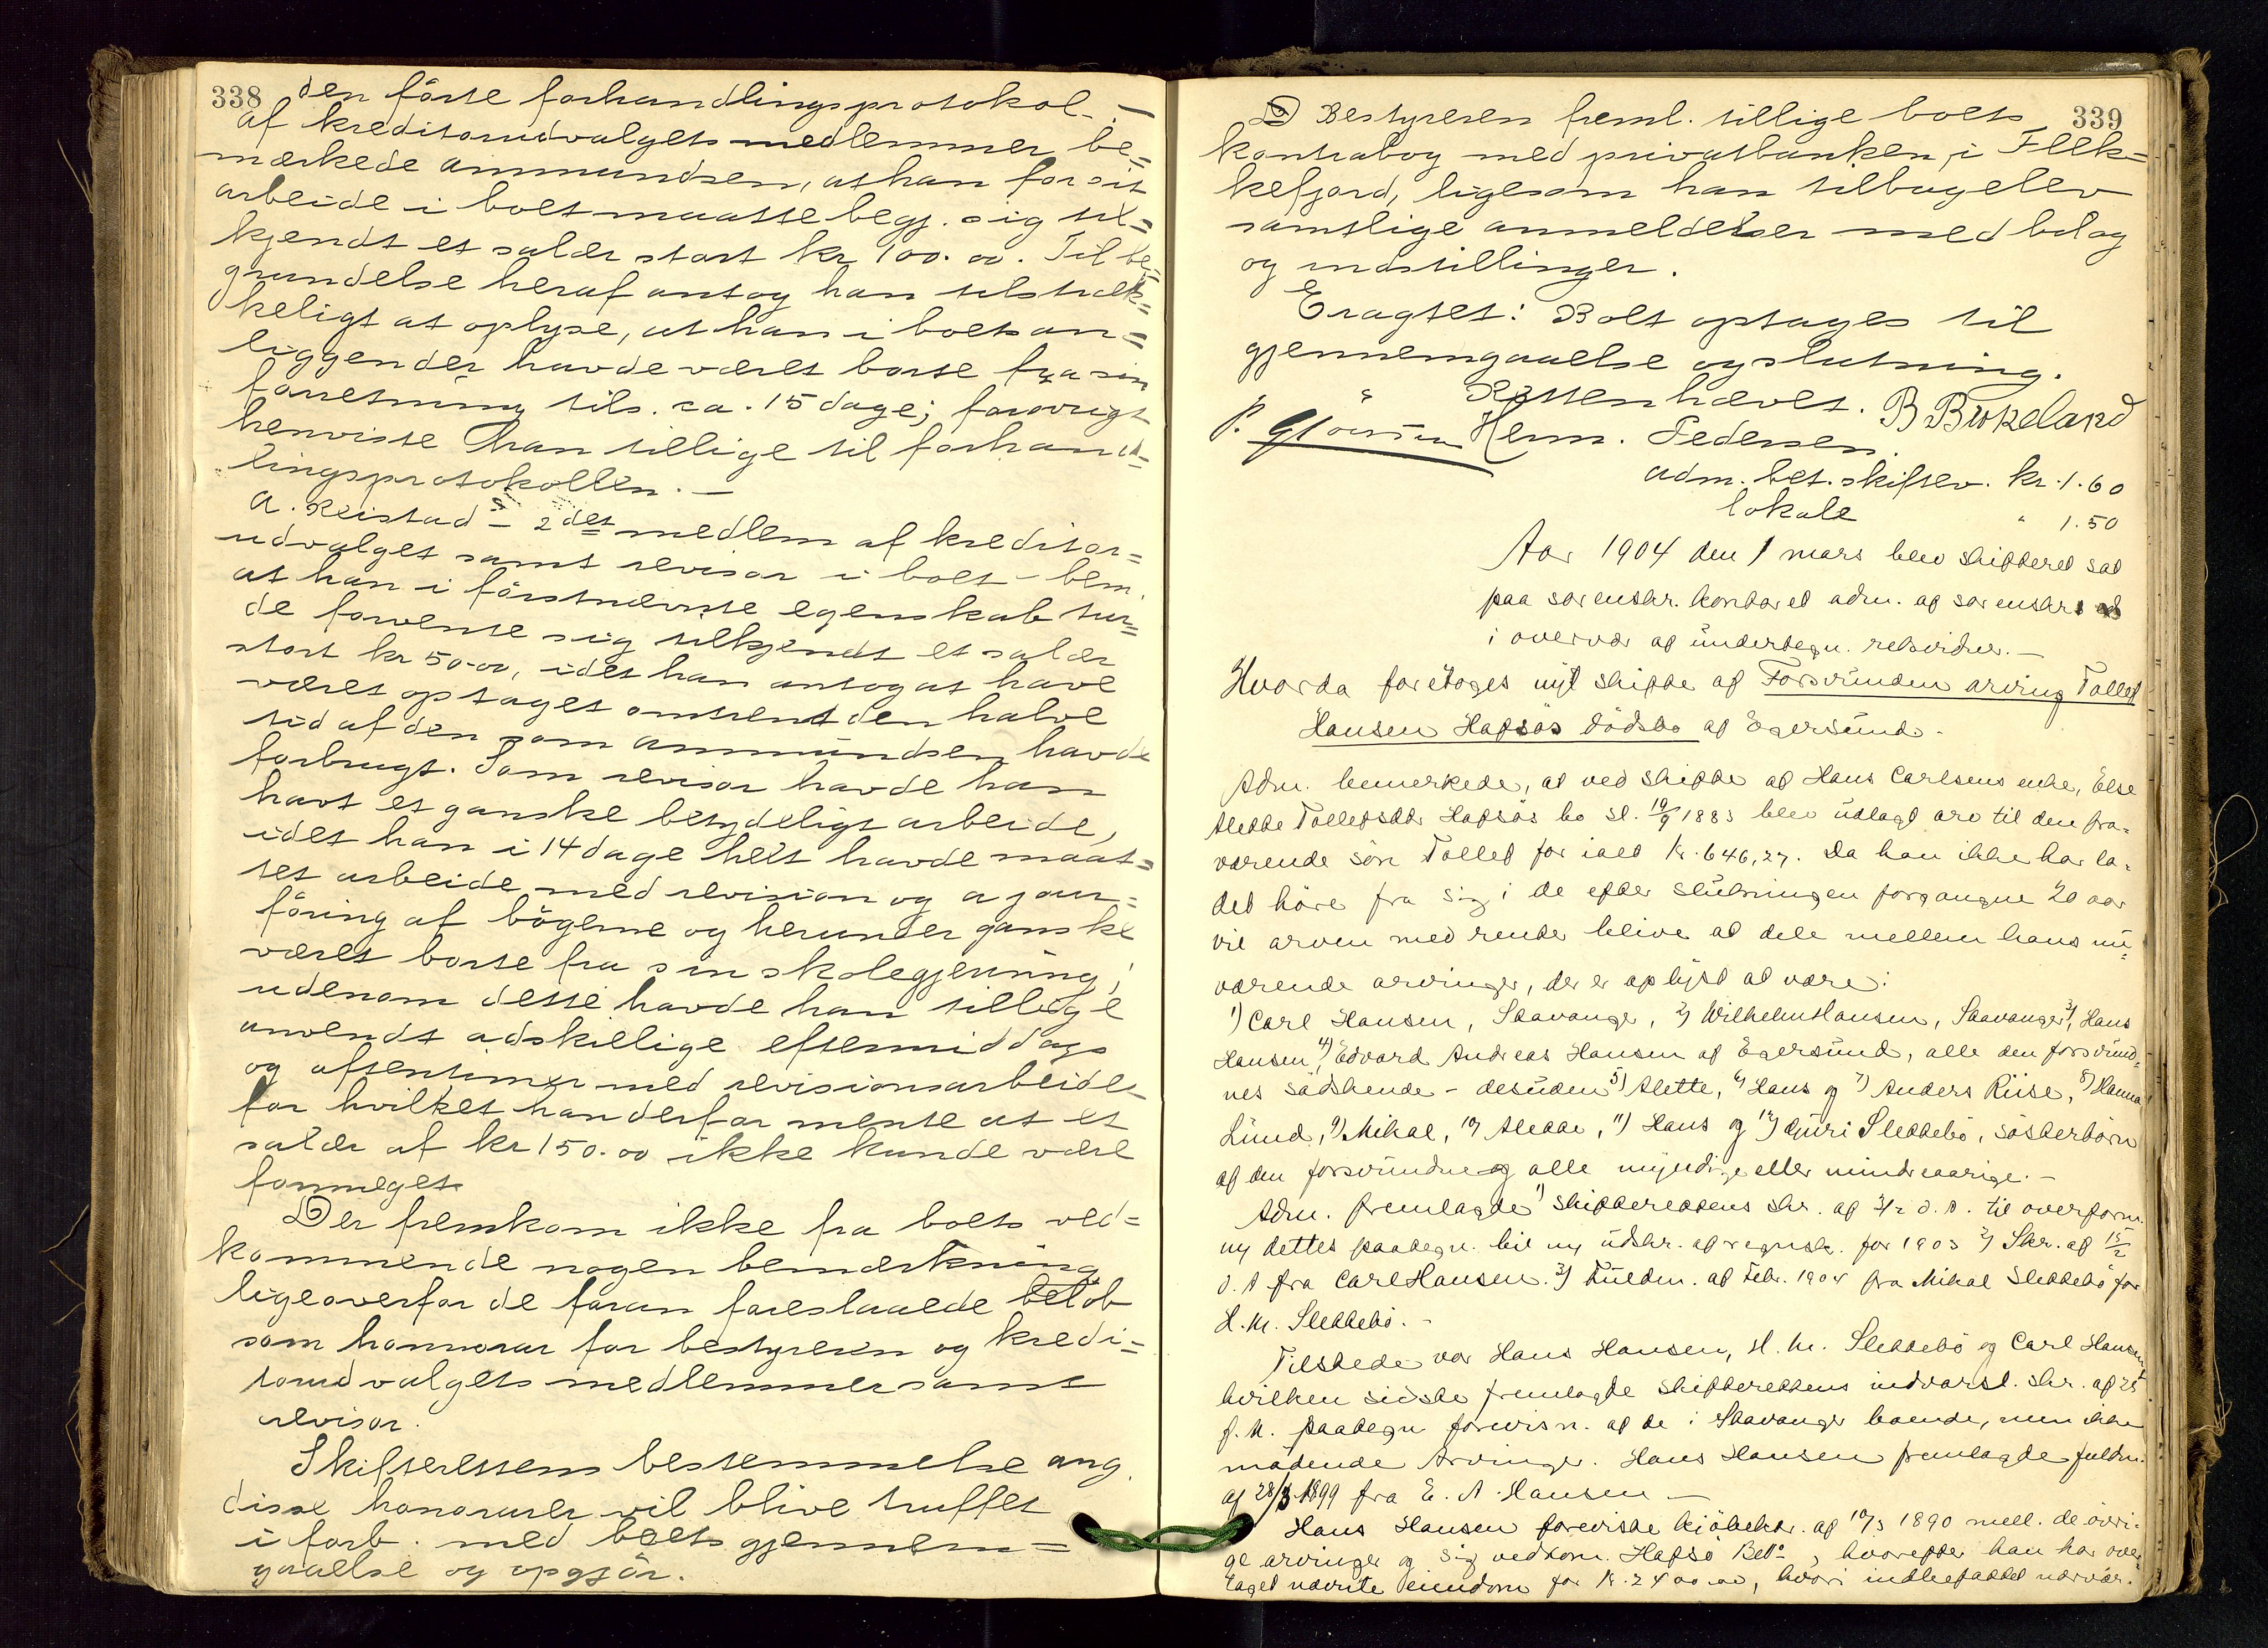 338 den förte forhandlingsprotokol. —
af kreditorudvalgets medlemmer be=
mærkede Ammundsen, at han for sit
arbeide i boet maatte begj. sig til=
kjendt et salær stort kr 100.00. Til be=
grundelse heraf antog han tilstræk=
keligt at oplyse, at han i boets an=
liggender havde været borte fra sin
forretning tils. ca. 15 dage; forøvrigt
henviste han tillige til forhand=
lingsprotokollen. —
A. Reistad – 2det medlem af kreditor=
udvalget samt revisor i boet – bem.
at han i förstnævnte egenskab tur=
de forvente sig tilkjendt et salær
stort kr 50.00, idet han antog at have
været optaget omtrent den halve
tid af den som Ammundsen havde
forbrugt. Som revisor havde han
havt et ganske betydeligt arbeide,
idet han i 14 dage helt havde maat=
tet arbeide med revision og ajour=
föring af bögerne og herunder ganske
været borte fra sin skolegjerning;
udenom dette havde han tillige
anvendt adskillige eftermiddags
og aftentimer med revisionsarbeidet
for hvilket han derfor mente at et
salær af kr 150.00 ikke kunde være
formeget.
Der fremkom ikke fra boets ved=
kommende nogen bemærkning
ligeoverfor de foran foreslaaede belöb
som honnorar for bestyreren og kredi=
torudvalgets medlemmer samt
revisor.
Skifterettens bestemmelse ang.
disse honorarer vil blive truffet
i forb. med boets gjennem=
gaaelse og opgjör.
339
Bestyreren freml. tillige boets
kontrabog med privatbanken i Flek=
kefjord, ligesom han tilbagelev
samtlige anmeldelser med bilag
og indstillinger.
Eragtet: Boet optages til
gjennemgaaelse og slutning.
Retten hævet. B Birkeland
Herm. Pedersen.
adm. bet. skiftev. kr. 1.60
lokale " 1.50
Aar 1904 den 1 mars blev skifteret sat
paa sorenskr. kontoret adm. af sorenskr.
i overvær af undertegn. retsvidner. —
Hvorda foretoges nyt skifte af Forsvunden arving Tollef
Hansen Hafsös dödsbo af Egersund.
Adm. bemerkede, at ved skifte af Hans Carlsens enke, Else
Alette Tollefsdtr Hafsös bo sl. 10/9 1883 blev udlagt arv til den fra-
værende sön Tollef for ialt kr. 646,27. Da han ikke har la-
det höre fra sig i de efter slutningen forgangne 20 aar
vil arven med renter blive at dele mellem hans nu=
værende arvinger, der er oplyst at være:
1) Carl Hansen, Stavanger, 2) Wilhelm Hansen, Stavanger, 3) Hans
Hansen 4) Edvard Andreas Hansen af Egersund, alle den forsvund=
nes södskende – desuden 5) Alette, 6) Hans og 7) Anders Riise, 8) Hanna
Lund, 9) Mikal, 10) Alette, 11) Hans og 12) Guri Slettebö, sösterbörn
af den forsvundne og alle myndige eller mindreaarige. —
Adm. fremlagde 1) skifterettens skr. af 3/2 d. A. til overform.
my dettes paategn. til ny udskr. af regnsk. for 1903 2) Skr. af 15/2
d. A fra Carl Hansen. 3) Fuldm. af Febr. 1904 fra Mikal Slettebö for
H. M. Slettebö. –
Tilstede var Hans Hansen, H. M. Slettebö og Carl Hansen,
hvilken sidste fremlagde skifterettens indvarsl. skr. af 25
f. M. paategn forevisn. af de i Stavanger boende, men ikke
mödende Arvinger. Hans Hansen fremlagde fuldm.
af 28/3 1899 fra E. A. Hansen —
Hans Hansen foreviste kjöbektr. af 10/3 1890 mell. de övri-
ge arvinger og sig vedkom. Hafsö , hvorefter han har over
taget nævnte eiendom for kr. 2400.00, hvori indbefattet nærvær.